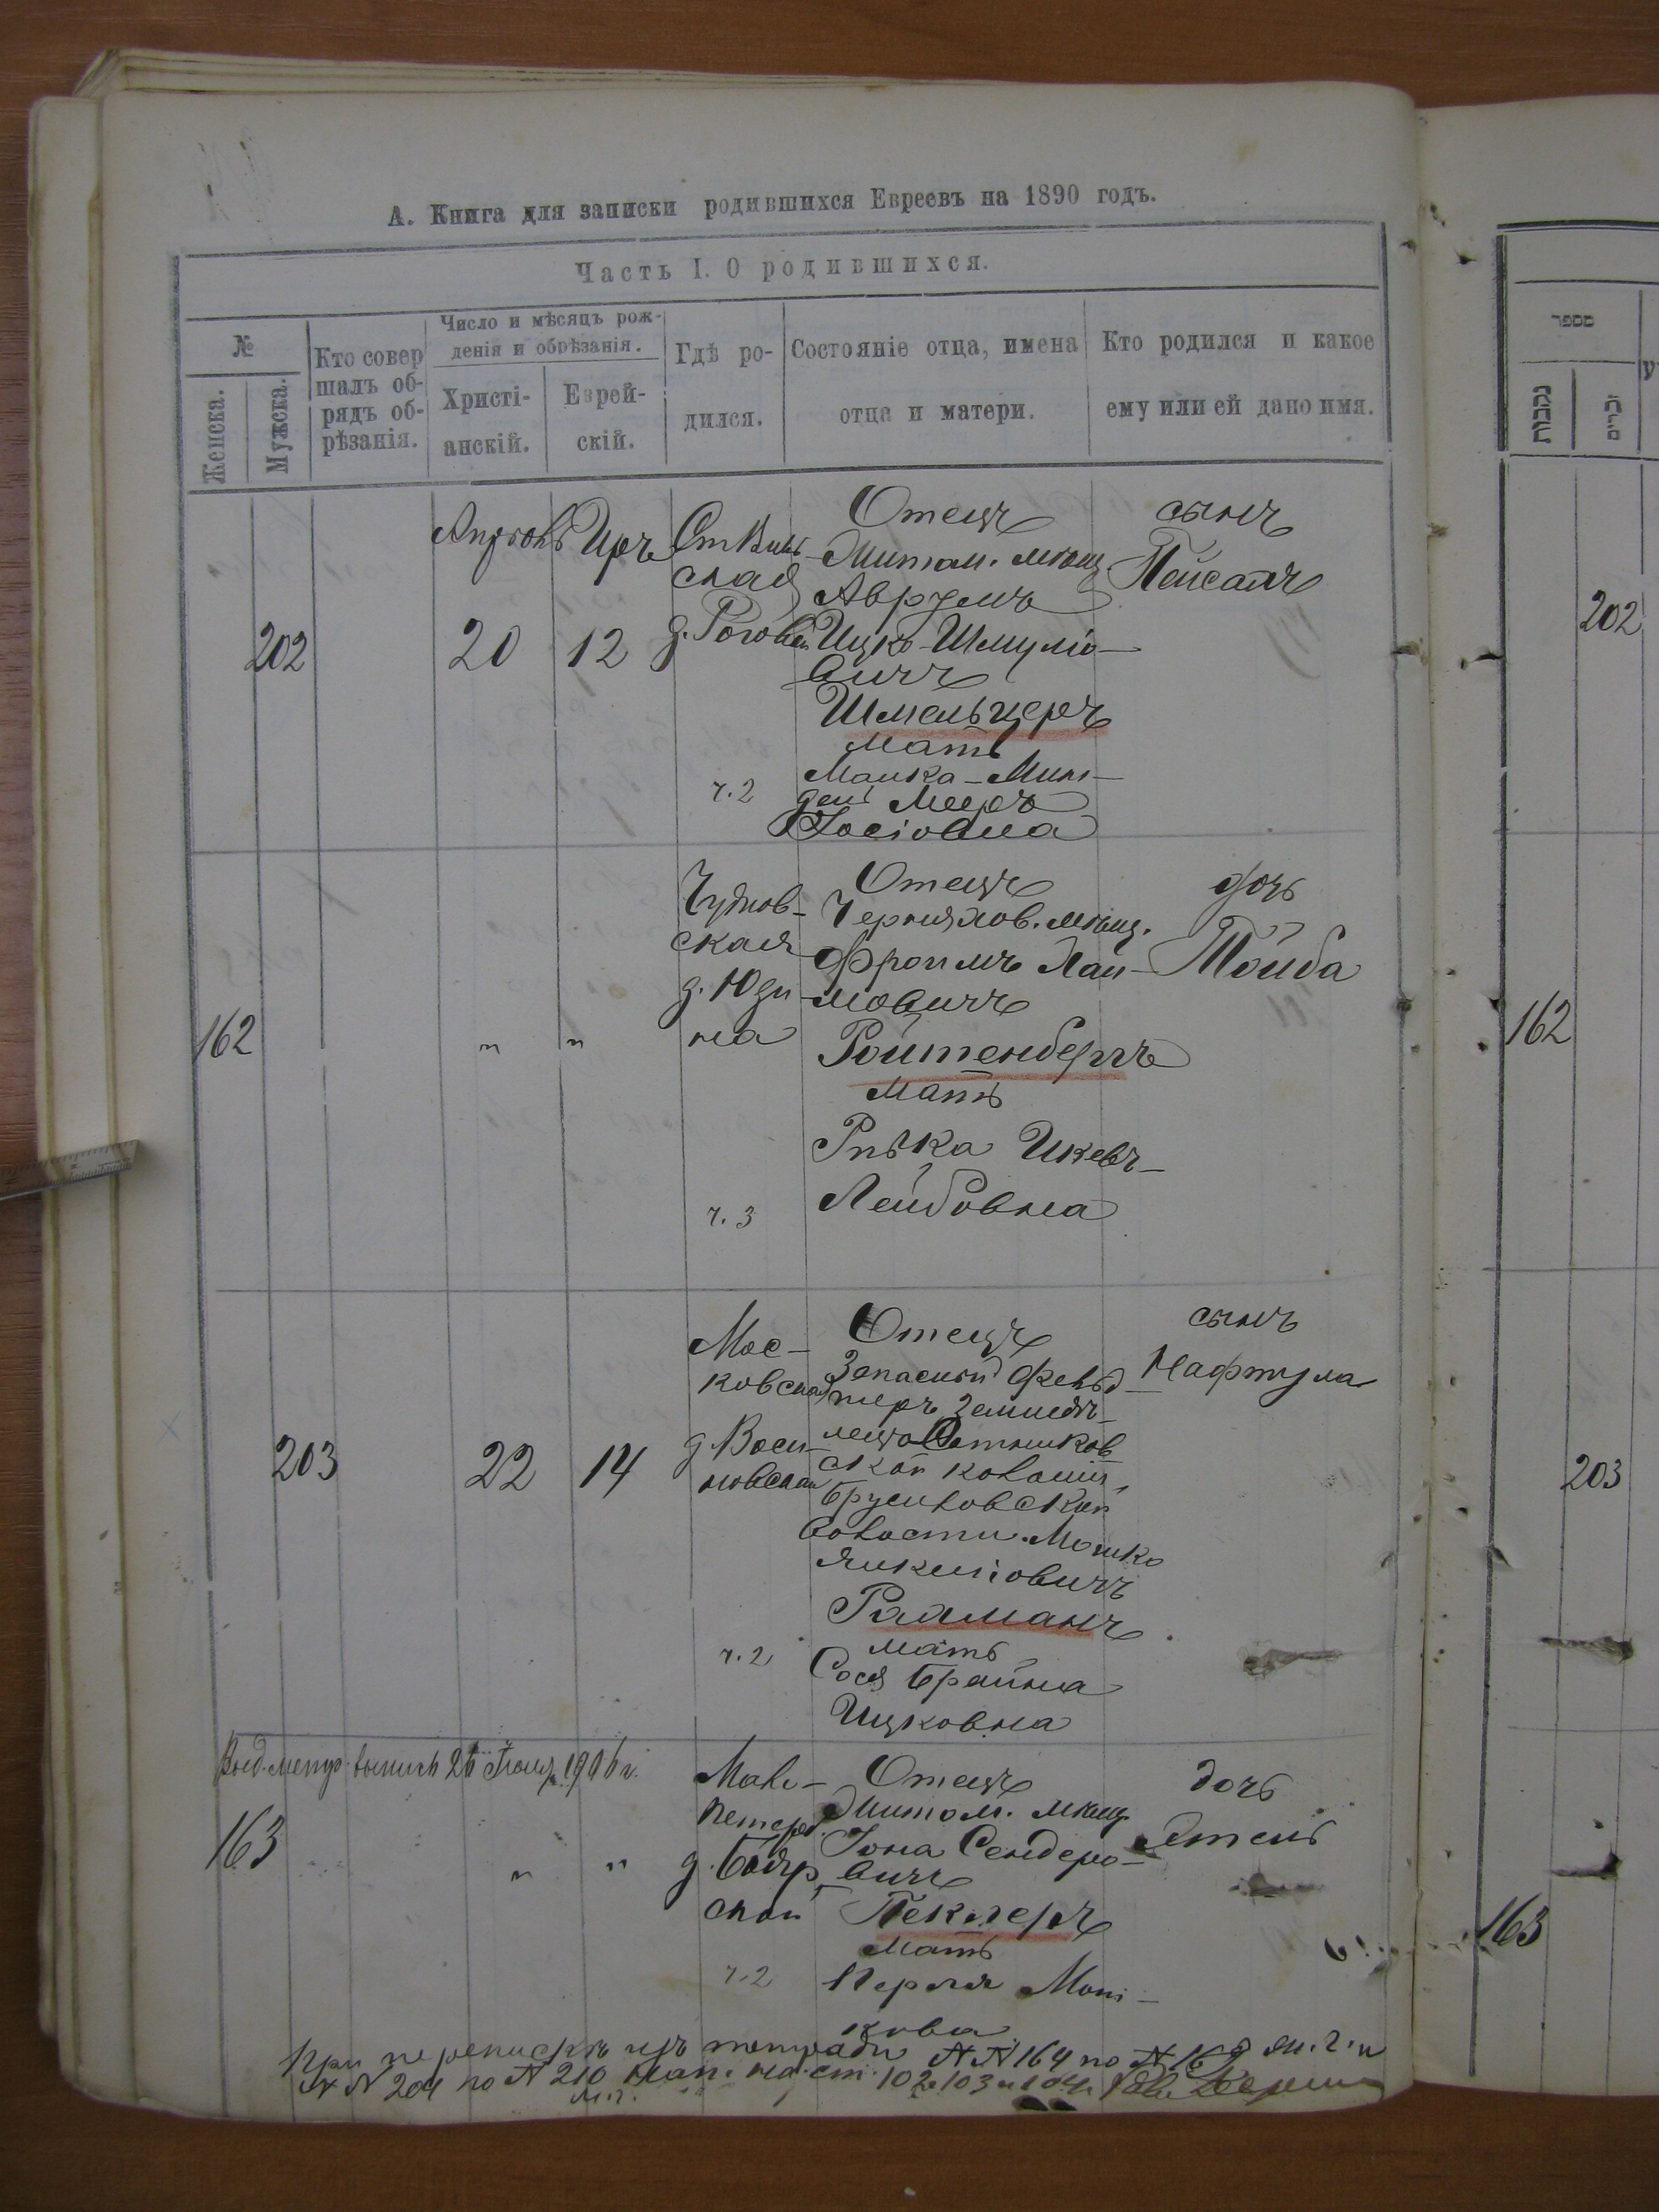 А. Книга для записки родившихся Евреевъ на 1890 годъ.
Часть I. О родившихся.
№
Женска.
Мужска.
Кто совер
шалъ об-
рядъ об-
рѣзанія.
Число и мѣсяцъ рож-
денія и обрѣзанія.
Христі-
анскій.
Еврей-
скій.
Гдѣ ро-
дился.
Состояніе отца, имена
отца и матери.
Кто родился и какое
ему или ей дано имя.
202
20
12
ская
ч. 2
Отецъ
Житом. мѣщ.
Аврумъ
Ицко-Шмуліо-
вичъ
Шмельцеръ
Мать
Малка-Мин-
Мееръ
Іосіовна
сынъ
Пейсахъ
162
"
"
Чуднов-
ская
д. Юди
на
ч. 3
Отецъ
Черняхов. мѣщ.
Фроимъ Хаи-
мовичъ
Ройтенбергъ
Мать
Ривка
Лейбовна
дочь
Тойба
203
22
14
Мос-
ковская
ч. 2
Отецъ
Запасный Фельд
шеръ Землевл-
ской колоніи
Брусиловской
волости Мошко
Янкеліовичъ
Мать
Сося Брайна
Ицковна
сынъ
Нафтула
Выд. метр. выпись 26 Іюля 1906 г.
163
"
"
Мало-
ской
ч. 2
Отецъ
Житом. мѣщ
Іона Сендеро-
вичъ
Пеклеръ
Мать
Перля Мош-
кова
дочь
Этель
При перепискѣ изъ тетради №№ 164 по №
№№ 204 по № 210 нап. на ст. 102, 103 и 104.
מספר
נקבות
זכרים
202
162
203
163